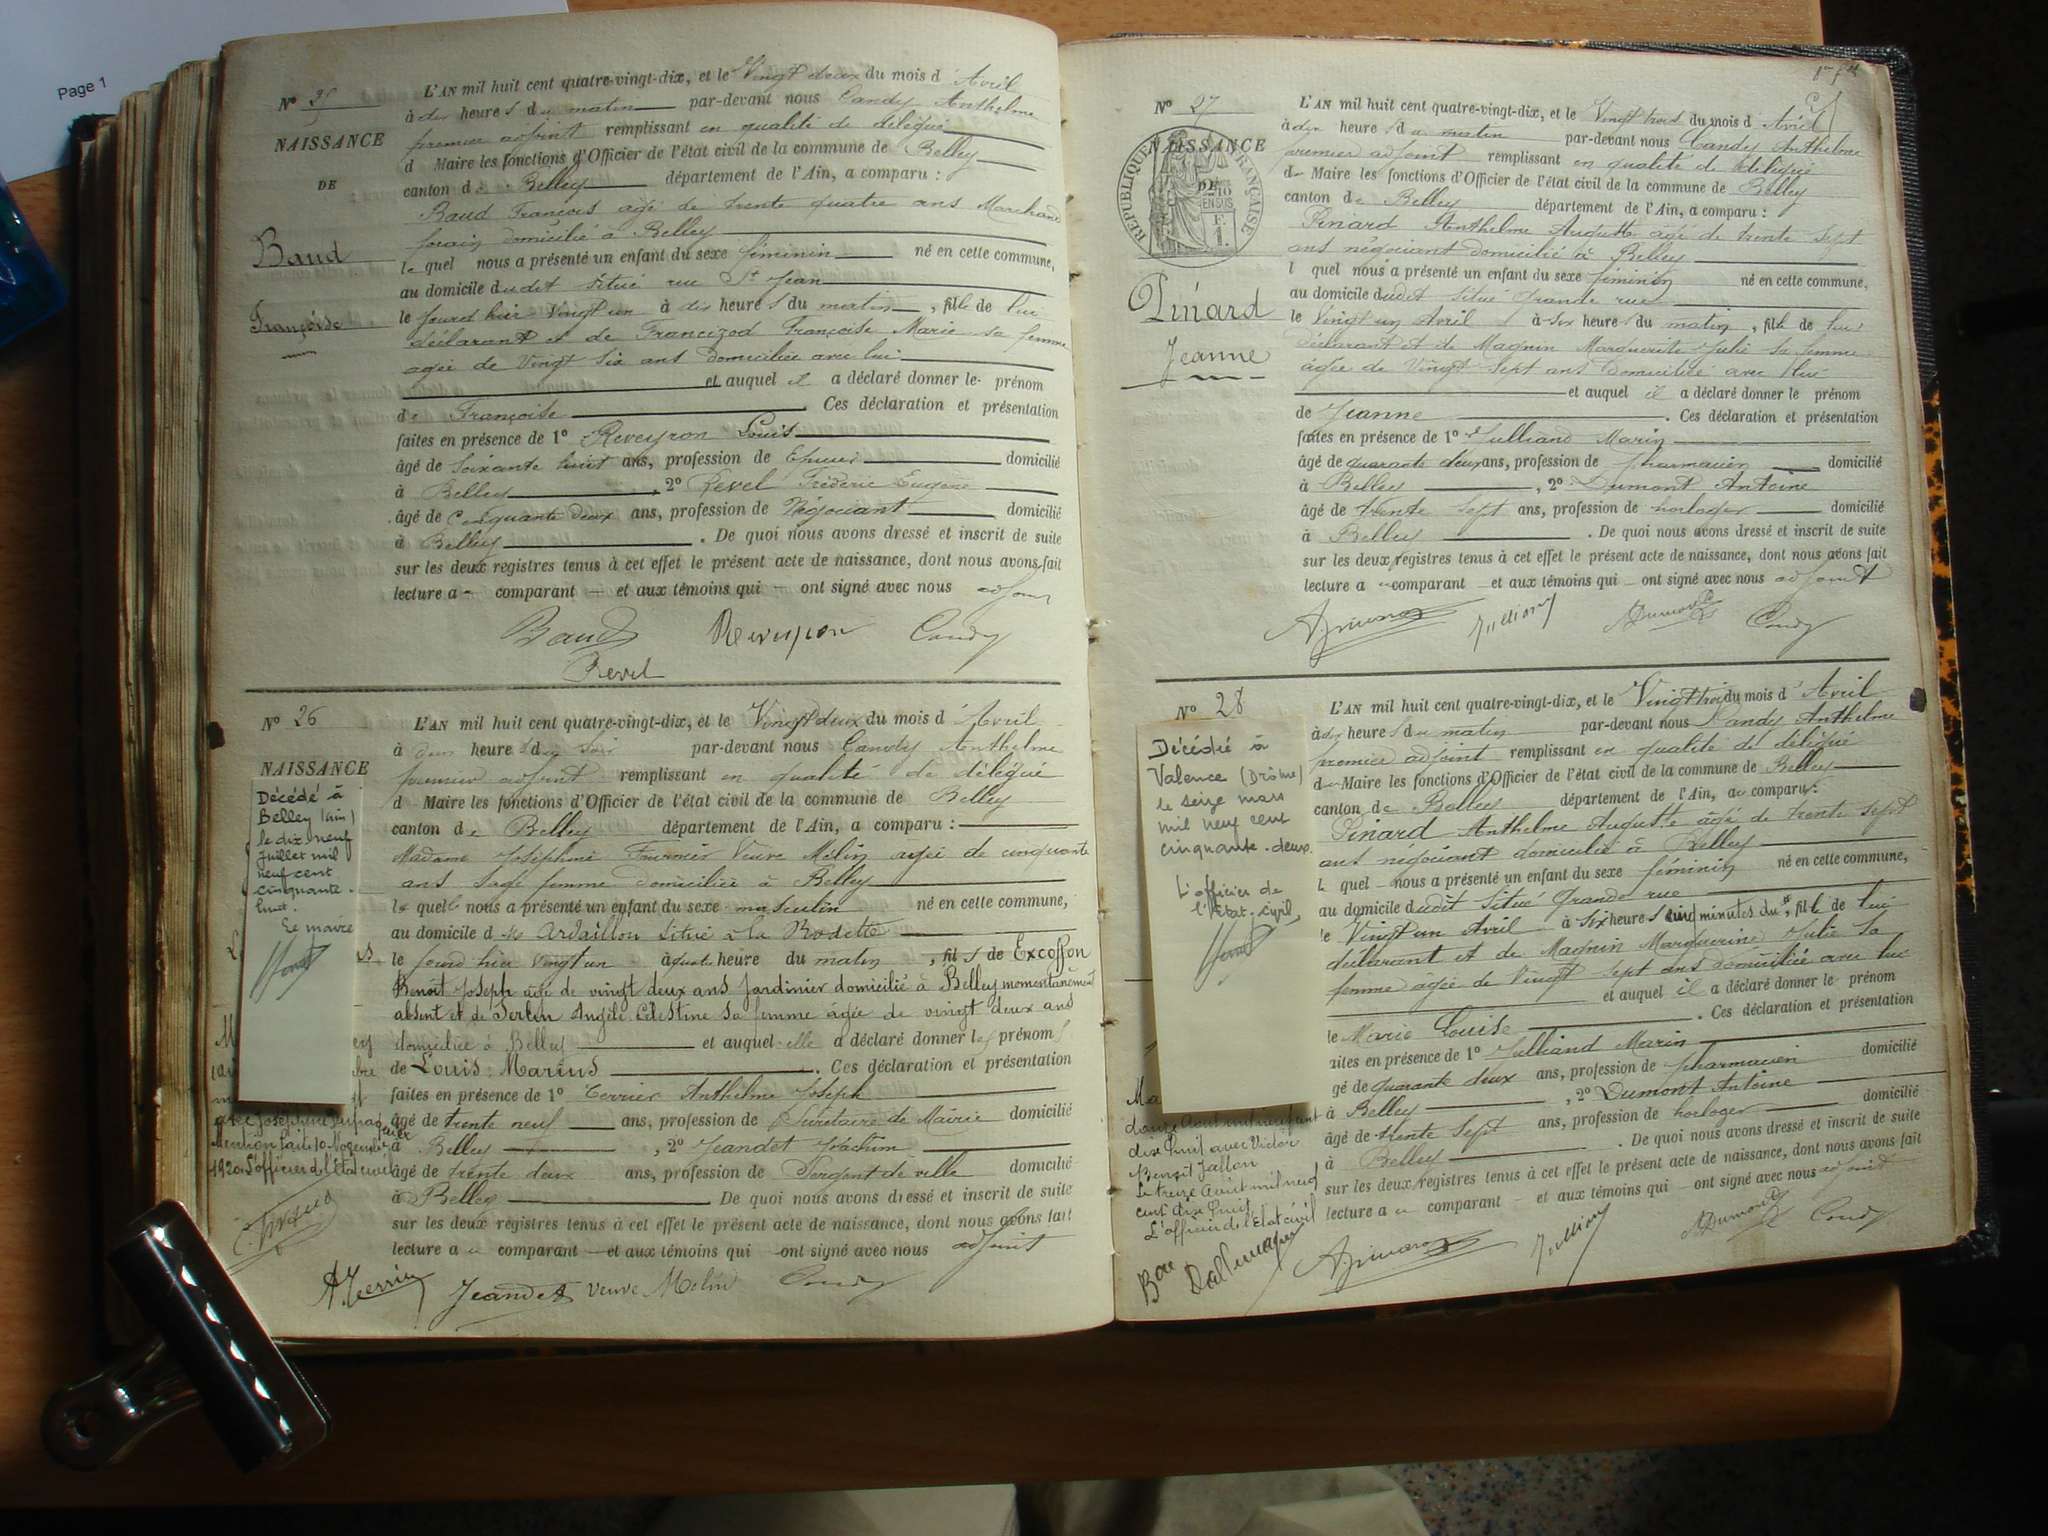 Page 1
N° 25
NAISSANCE
DE
Baud
Françoise
L'AN mil huit cent quatre-vingt-dix, et le Vingt deux du mois d'Avril
à dix heures du matin par-devant nous Candy Anthelme
premier adjoint remplissant en qualité de délégué
d Maire les fonctions d'Officier de l'état civil de la commune de Belley
canton de Belley département de l'Ain, a comparu :
Baud François agé de trente quatre ans Marchand
forain domicilié à Belley
lequel nous a présenté un enfant du sexe féminin né en cette commune,
au domicile dudit situé rue St Jean
le jourd'hier Vingt un à dix heures du matin, fille de lui
déclarant et de Françoise Marie sa femme
agée de Vingt six ans domiciliée avec lui
et auquel il a déclaré donner le prénom
de Françoise. Ces déclaration et présentation
faites en présence de 1° Reveyron Louis
âgé de Soixante huit ans, profession de domicilié
à Belley, 2° Revel Fréderic Eugène
âgé de Cinquante deux ans, profession de Négociant domicilié
à Belley. De quoi nous avons dressé et inscrit de suite
sur les deux registres tenus à cet effet le présent acte de naissance, dont nous avons fait
lecture au comparant et aux témoins qui ont signé avec nous adjoint
Baud Reveyron Candy
Revel
N° 26
NAISSANCE
Décédé à
Belley (Ain)
le dix neuf
Juillet mil
neuf cent
cinquante-
huit.
Le maire
avec Joséphine
Mention faite 10 Novembre
1920 L'officier de l'état civil
L'AN mil huit cent quatre-vingt-dix, et le Vingt deux du mois d'Avril
à deux heures du soir par-devant nous Candy Anthelme
premier adjoint remplissant en qualité de délégué
d Maire les fonctions d'Officier de l'état civil de la commune de Belley
canton de Belley département de l'Ain, a comparu :
Madame Joséphine Fournier Veuve Mélin agée de cinquante
ans Sage femme domiciliée à Belley
lequelle nous a présenté un enfant du sexe masculin né en cette commune,
au domicile de Ardaillon situé à la Rodette
le jourd'hier vingt un à quatre heure du matin, fils de Excoffon
Benoît Joseph âgé de vingt deux ans Jardinier domicilié à Belley momentanément
absent et de Angèle Célestine sa femme âgée de vingt deux ans
domiciliée à Belley et auquel elle a déclaré donner les prénoms
de Louis Marius. Ces déclaration et présentation
faites en présence de 1° Terrier Anthelme Joseph
âgé de trente neuf ans, profession de Secrétaire de Mairie domicilié
à Belley, 2° Jeandet Joachim
âgé de trente deux ans, profession de Sergent de ville domicilié
à Belley De quoi nous avons dressé et inscrit de suite
sur les deux registres tenus à cet effet le présent acte de naissance, dont nous avons fait
lecture au comparant et aux témoins qui ont signé avec nous adjoint
A. Terrier Jeandet veuve Melin Candy
N° 27
NAISSANCE
DE
RÉPUBLIQUE FRANÇAISE
Pinard
Jeanne
L'AN mil huit cent quatre-vingt-dix, et le Vingt trois du mois d'Avril
à dix heures du matin par-devant nous Candy Anthelme
premier adjoint remplissant en qualité de délégué
de Maire les fonctions d'Officier de l'état civil de la commune de Belley
canton de Belley département de l'Ain, a comparu :
Pinard Anthelme Auguste agé de trente sept
ans négociant domicilié à Belley
l quel nous a présenté un enfant du sexe féminin né en cette commune,
au domicile dudit situé grande rue
le Vingt un Avril à six heures du matin, fille de lui
déclarant et de Magnin Marguerite Julie sa femme
âgée de Vingt sept ans domiciliée avec lui
et auquel il a déclaré donner le prénom
de Jeanne. Ces déclaration et présentation
faites en présence de 1° Julliand Marin
âgé de quarante deux ans, profession de pharmacien domicilié
à Belley, 2° Dumont Antoine
âgé de trente sept ans, profession de horloger domicilié
à Belley. De quoi nous avons dressé et inscrit de suite
sur les deux registres tenus à cet effet le présent acte de naissance, dont nous avons fait
lecture au comparant et aux témoins qui ont signé avec nous adjoint
A. Pinard Julliand A. Dumont Candy
N° 28
Décédée à
Valence (Drôme)
le seize mars
mil neuf cent
cinquante-deux.
L'officier de
l'Etat-Civil,
douze Août mil neuf cent
dix huit avec Victor
Benoît Jallon
Le treize Août mil neuf
cent dix huit
L'officier de l'Etat civil
L'AN mil huit cent quatre-vingt-dix, et le Vingt trois du mois d'Avril
à dix heures du matin par-devant nous Candy Anthelme
premier adjoint remplissant en qualité de délégué
de Maire les fonctions d'Officier de l'état civil de la commune de Belley
canton de Belley département de l'Ain, a comparu :
Pinard Anthelme Auguste âgé de trente sept
ans négociant domicilié à Belley
l quel nous a présenté un enfant du sexe féminin né en cette commune,
au domicile dudit situé Grande rue
le Vingt un Avril à six heures cinq minutes du, fille de lui
déclarant et de Magnin Marguerine Julie sa
femme agée de Vingt sept ans domiciliée avec lui
et auquel il a déclaré donner le prénom
le Marie Louise. Ces déclaration et présentation
aites en présence de 1° Julliand Marin
gé de quarante deux ans, profession de pharmacien domicilié
à Belley, 2° Dumont Antoine
âgé de trente sept ans, profession de horloger domicilié
à Belley. De quoi nous avons dressé et inscrit de suite
sur les deux registres tenus à cet effet le présent acte de naissance, dont nous avons fait
lecture au comparant et aux témoins qui ont signé avec nous adjoint
A. Pinard Julliand A. Dumont Candy